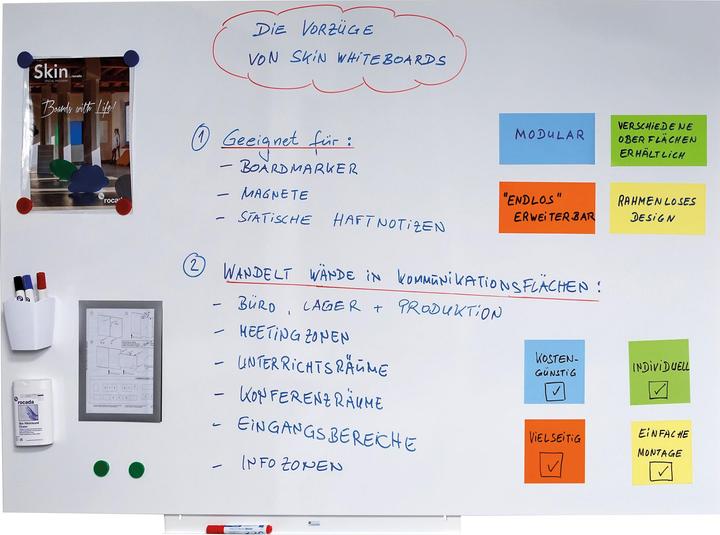 DIE VORZÜGE
VON SKIN WHITEBOARDS
Skin
Boards with Life!
rocada
① Geeignet für:
– BOARDMARKER
– MAGNETE
– STATISCHE HAFTNOTIZEN
② WANDELT WÄNDE IN KOMMUNIKATIONSFLÄCHEN:
– BÜRO, LAGER + PRODUKTION
– MEETINGZONEN
– UNTERRICHTSRÄUME
– KONFERENZRÄUME
– EINGANGSBEREICHE
– INFOZONEN
MODULAR
VERSCHIEDENE
OBERFLÄCHEN
ERHÄLTLICH
"ENDLOS"
ERWEITERBAR
RAHMENLOSES
DESIGN
KOSTEN-
GÜNSTIG
INDIVIDUELL
VIELSEITIG
EINFACHE
MONTAGE
rocada